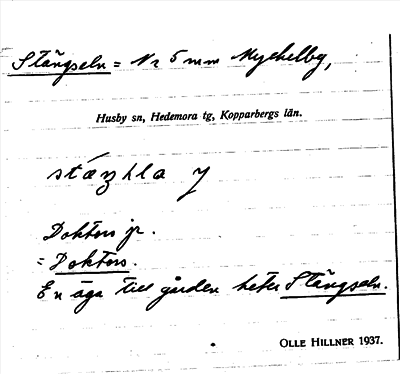 Stängseln = Nr 5 mm Myckelby,
Husby sn, Hedemora tg, Kopparbergs län.
Doktors gr.
= Doktors.
En äga till gården heter Stängseln.
OLLE HILLNER 1937.